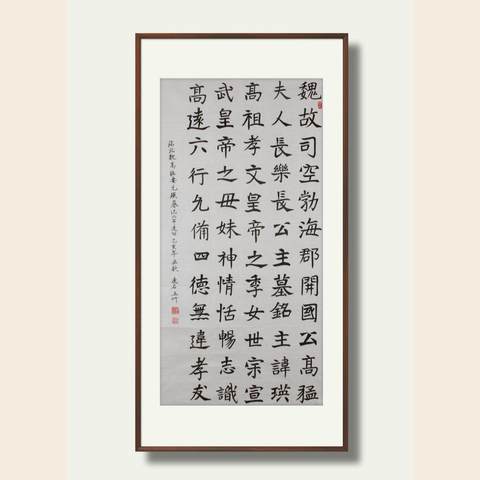 魏故司空勃海郡開國公髙猛
夫人長樂長公主墓銘主諱瑛
髙祖孝文皇帝之季女世宗宣
武皇帝之毋妹神情恬暢志識
髙遠六行允俻四德無違孝友
臨北魏高猛妻元瑛墓志